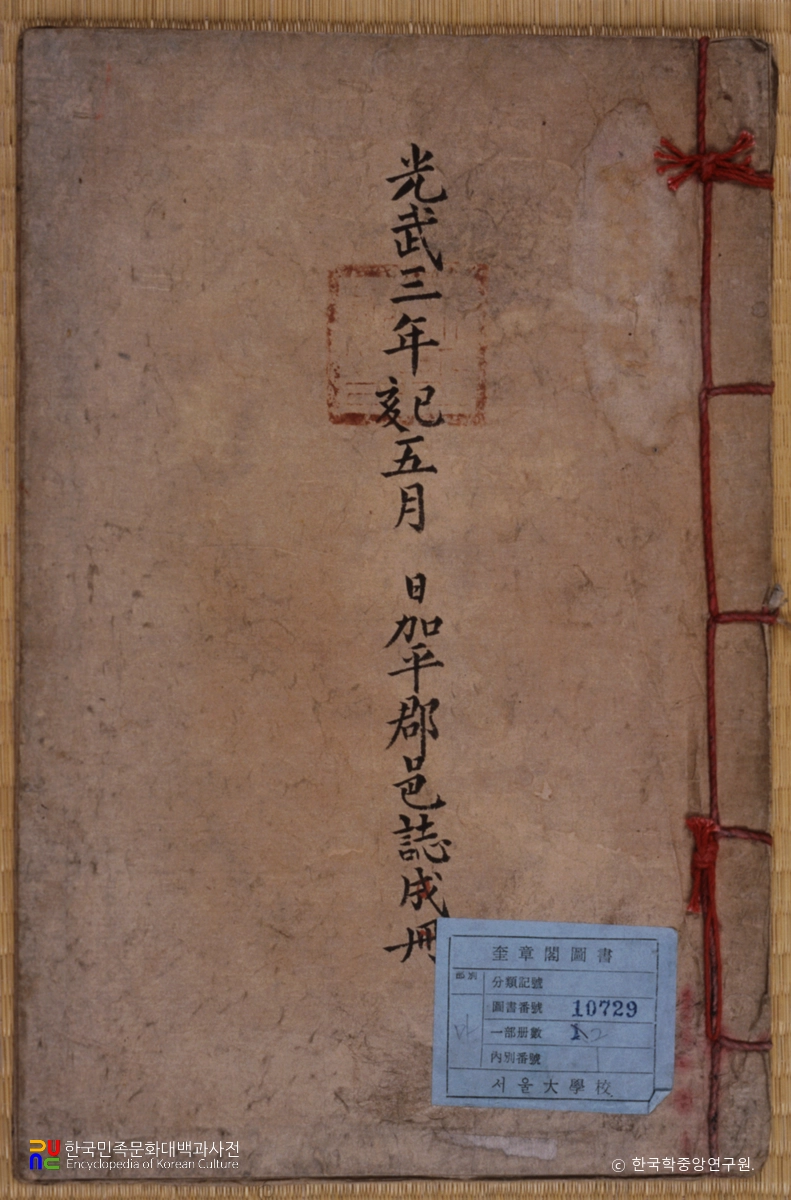 光武三年己亥五月 日加平郡邑誌成冊
奎章閣圖書
部別
分類記號
圖書番號 10729
一部册數 2
內別番號
서울大學校
한국민족문화대백과사전
Encyclopedia of Korean Culture
© 한국학중앙연구원